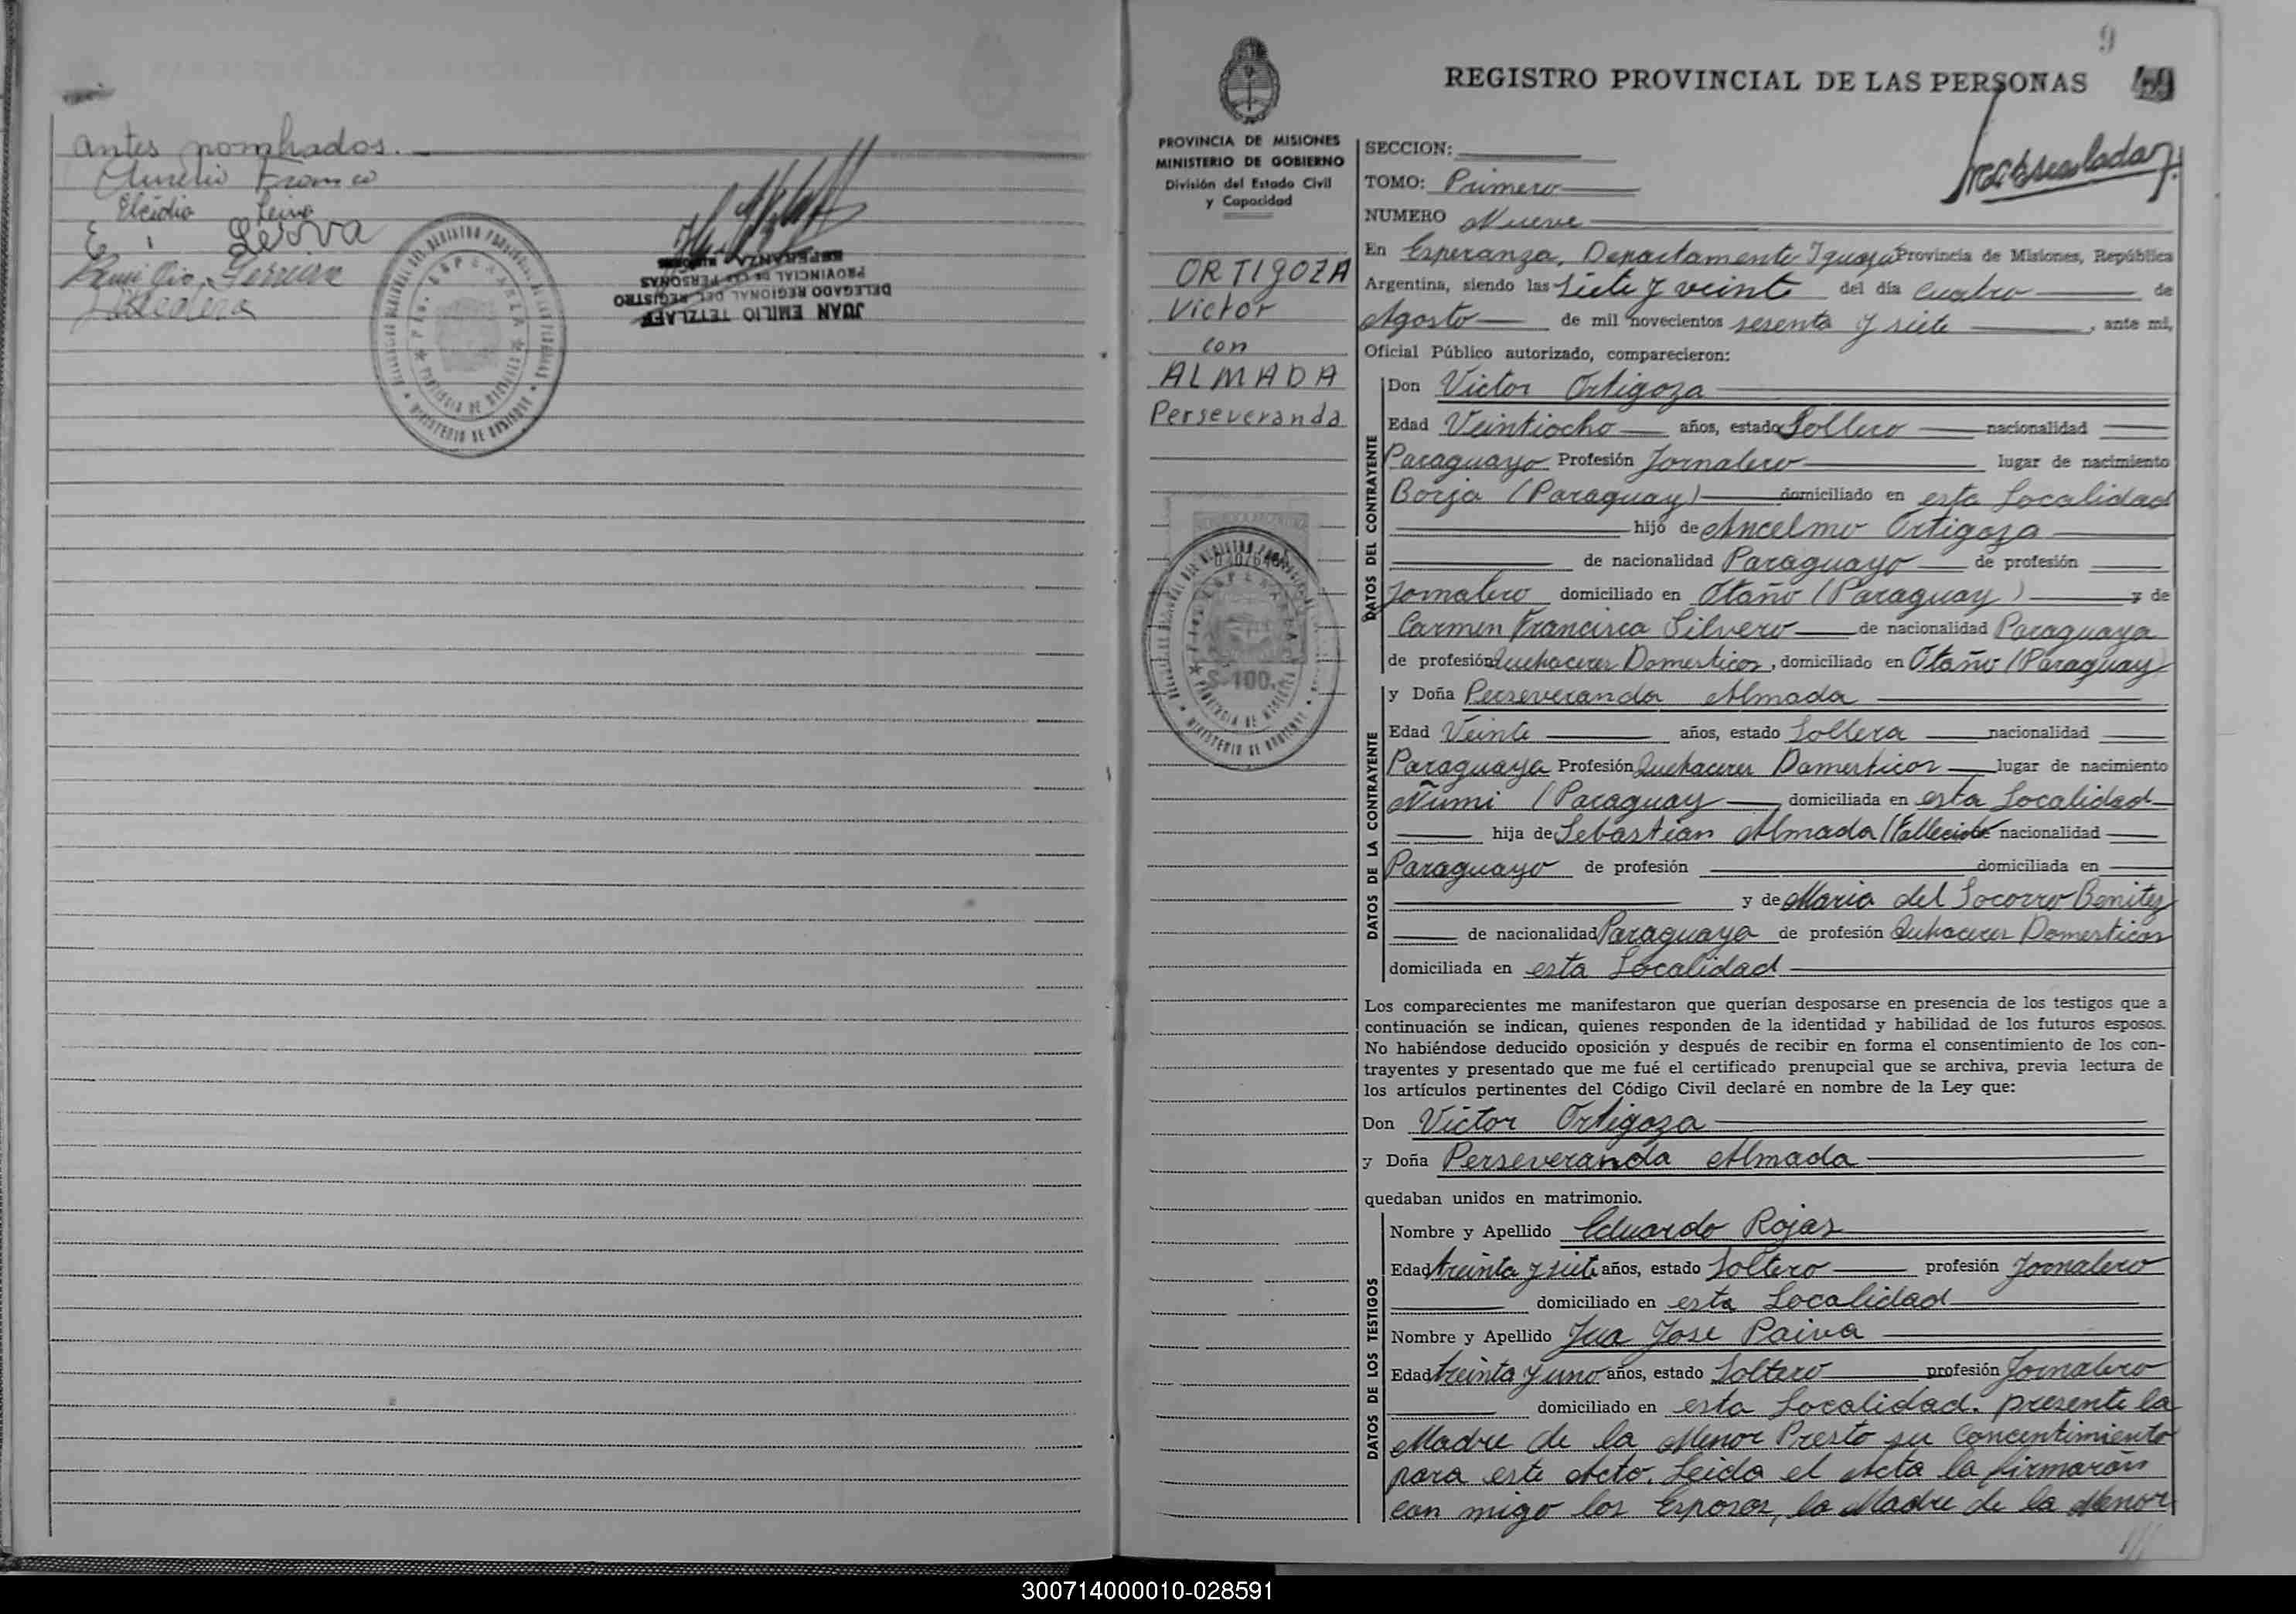 antes nombrados.
Aurelio Franco
Elcidia Leiva
E. Leiva
Ferreira
JUAN EMILIO TETZLAFF
DELEGADO REGIONAL DEL REGISTRO
PROVINCIAL DE LAS PERSONAS
ESPERANZA - MISIONES
9
REGISTRO PROVINCIAL DE LAS PERSONAS
PROVINCIA DE MISIONES
MINISTERIO DE GOBIERNO
División del Estado Civil
y Capacidad
ORTIGOZA
Victor
con
ALMADA
Perseveranda
$-100.
SECCION:
TOMO: Primero
NUMERO Nueve
En Esperanza, Departamento Iguazú Provincia de Misiones, República
Argentina, siendo las Siete y veinte del día Cuatro de
Agosto de mil novecientos sesenta y siete, ante mi,
Oficial Público autorizado, comparecieron:
DATOS DEL CONTRAYENTE
Don Victor Ortigoza
Edad Veintiocho años, estado Soltero nacionalidad
Paraguayo Profesión Jornalero lugar de nacimiento
Borja (Paraguay) domiciliado en esta Localidad
hijo de Ancelmo Ortigoza
de nacionalidad Paraguayo de profesión
Jornalero domiciliado en Otaño (Paraguay) y de
Carmen Francisca Silvero de nacionalidad Paraguaya
de profesión Quehaceres Domesticos, domiciliado en Otaño (Paraguay)
DATOS DE LA CONTRAYENTE
y Doña Perseveranda Almada
Edad Veinte años, estado Soltera nacionalidad
Paraguaya Profesión Quehaceres Domesticos lugar de nacimiento
Ñumi (Paraguay domiciliada en esta Localidad
hija de Sebastian Almada (Fallecido nacionalidad
Paraguayo de profesión domiciliada en
y de Maria del Socorro Benitez
de nacionalidad Paraguaya de profesión Quehaceres Domesticos
domiciliada en esta Localidad
Los comparecientes me manifestaron que querían desposarse en presencia de los testigos que a
continuación se indican, quienes responden de la identidad y habilidad de los futuros esposos.
No habiéndose deducido oposición y después de recibir en forma el consentimiento de los con-
trayentes y presentado que me fué el certificado prenupcial que se archiva, previa lectura de
los artículos pertinentes del Código Civil declaré en nombre de la Ley que:
Don Victor Ortigoza
y Doña Perseveranda Almada
quedaban unidos en matrimonio.
DATOS DE LOS TESTIGOS
Nombre y Apellido Eduardo Rojas
Edad treinta y siete años, estado Soltero profesión Jornalero
domiciliado en esta Localidad
Nombre y Apellido Jua Jose Paiva
Edad treinta y uno años, estado Soltero profesión Jornalero
domiciliado en esta Localidad. presente la
Madre de la Menor Presto su Concentimiento
para este Acto. Leida el Acta la firmarón
con migo los Esposos, la Madre de la Menor
///
300714000010-028591